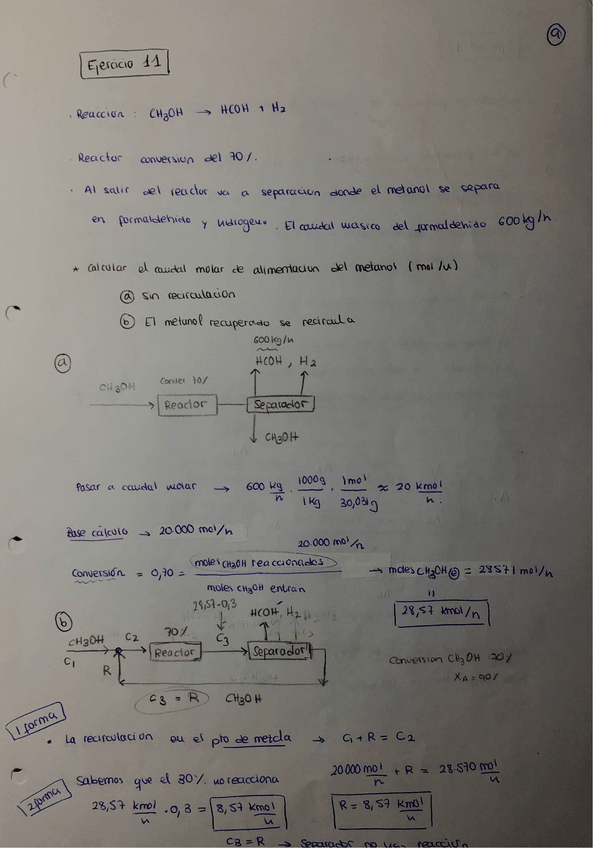 9
Ejercicio 11
. Reacción : CH3OH → HCOH + H2
. Reactor conversion del 70%.
. Al salir del reactor va a separacion donde el metanol se separa
en formaldehido y hidrogeno. El caudal masico del formaldehido 600 kg/h
* calcular el caudal molar de alimentacion del metanol (mol/h)
a Sin recirculacion
b El metanol recuperado se recircula
600 kg/h
a HCOH, H2
CH3OH Conver 70%
Reactor Separador
CH3OH
Pasar a caudal molar → 600 kg/h · 1000g/1kg · 1mol/30,031g ≈ 20 kmol/h.
Base cálculo → 20.000 mol/h
20.000 mol/h
Conversión = 0,70 = moles CH3OH reaccionados / moles CH3OH entran → moles CH3OH(e) = 28571 mol/h
=
28,57 kmol/h
28,57·0,3 HCOH, H2
b CH3OH C2 70% C3
C1 Reactor Separador
R
C3 = R CH3OH
Conversion CH3OH 70%
1 forma
. La recirculacion en el pto de mezcla → C1 + R = C2
Sabemos que el 30% no reacciona 20000 mol/h + R = 28.570 mol/h
2 forma
28,57 kmol/h · 0,3 = 8,57 kmol/h R = 8,57 kmol/h
C3 = R → Separador no hay reaccion